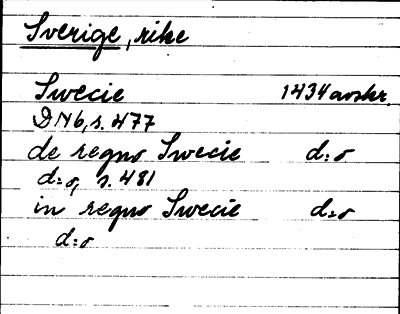 Sverige, rike
Swecie 1434 avskr.
DN6, s. 477
de regno Swecie d:o
d:o, s. 481
in regno Swecie d:o
d:o